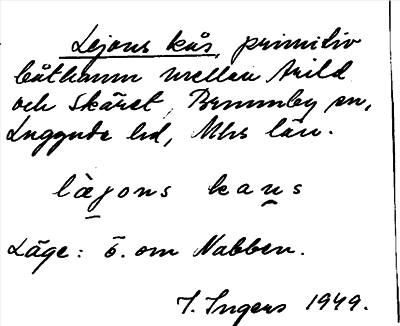 Lejons kås, primitiv
båthamn mellan Arild
och Skäret, Brunnby sn,
Luggude hd, Mhs län.
lä̱jons kau̱s
Läge: ö. om Nabben.
I. Ingers 1949.